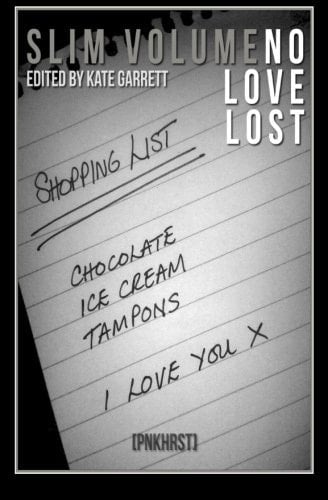 SLIM VOLUME NO
EDITED BY KATE GARRETT
LOVE
LOST
SHOPPING LIST
CHOCOLATE
ICE CREAM
TAMPONS
I LOVE YOU X
[PNKHRST]